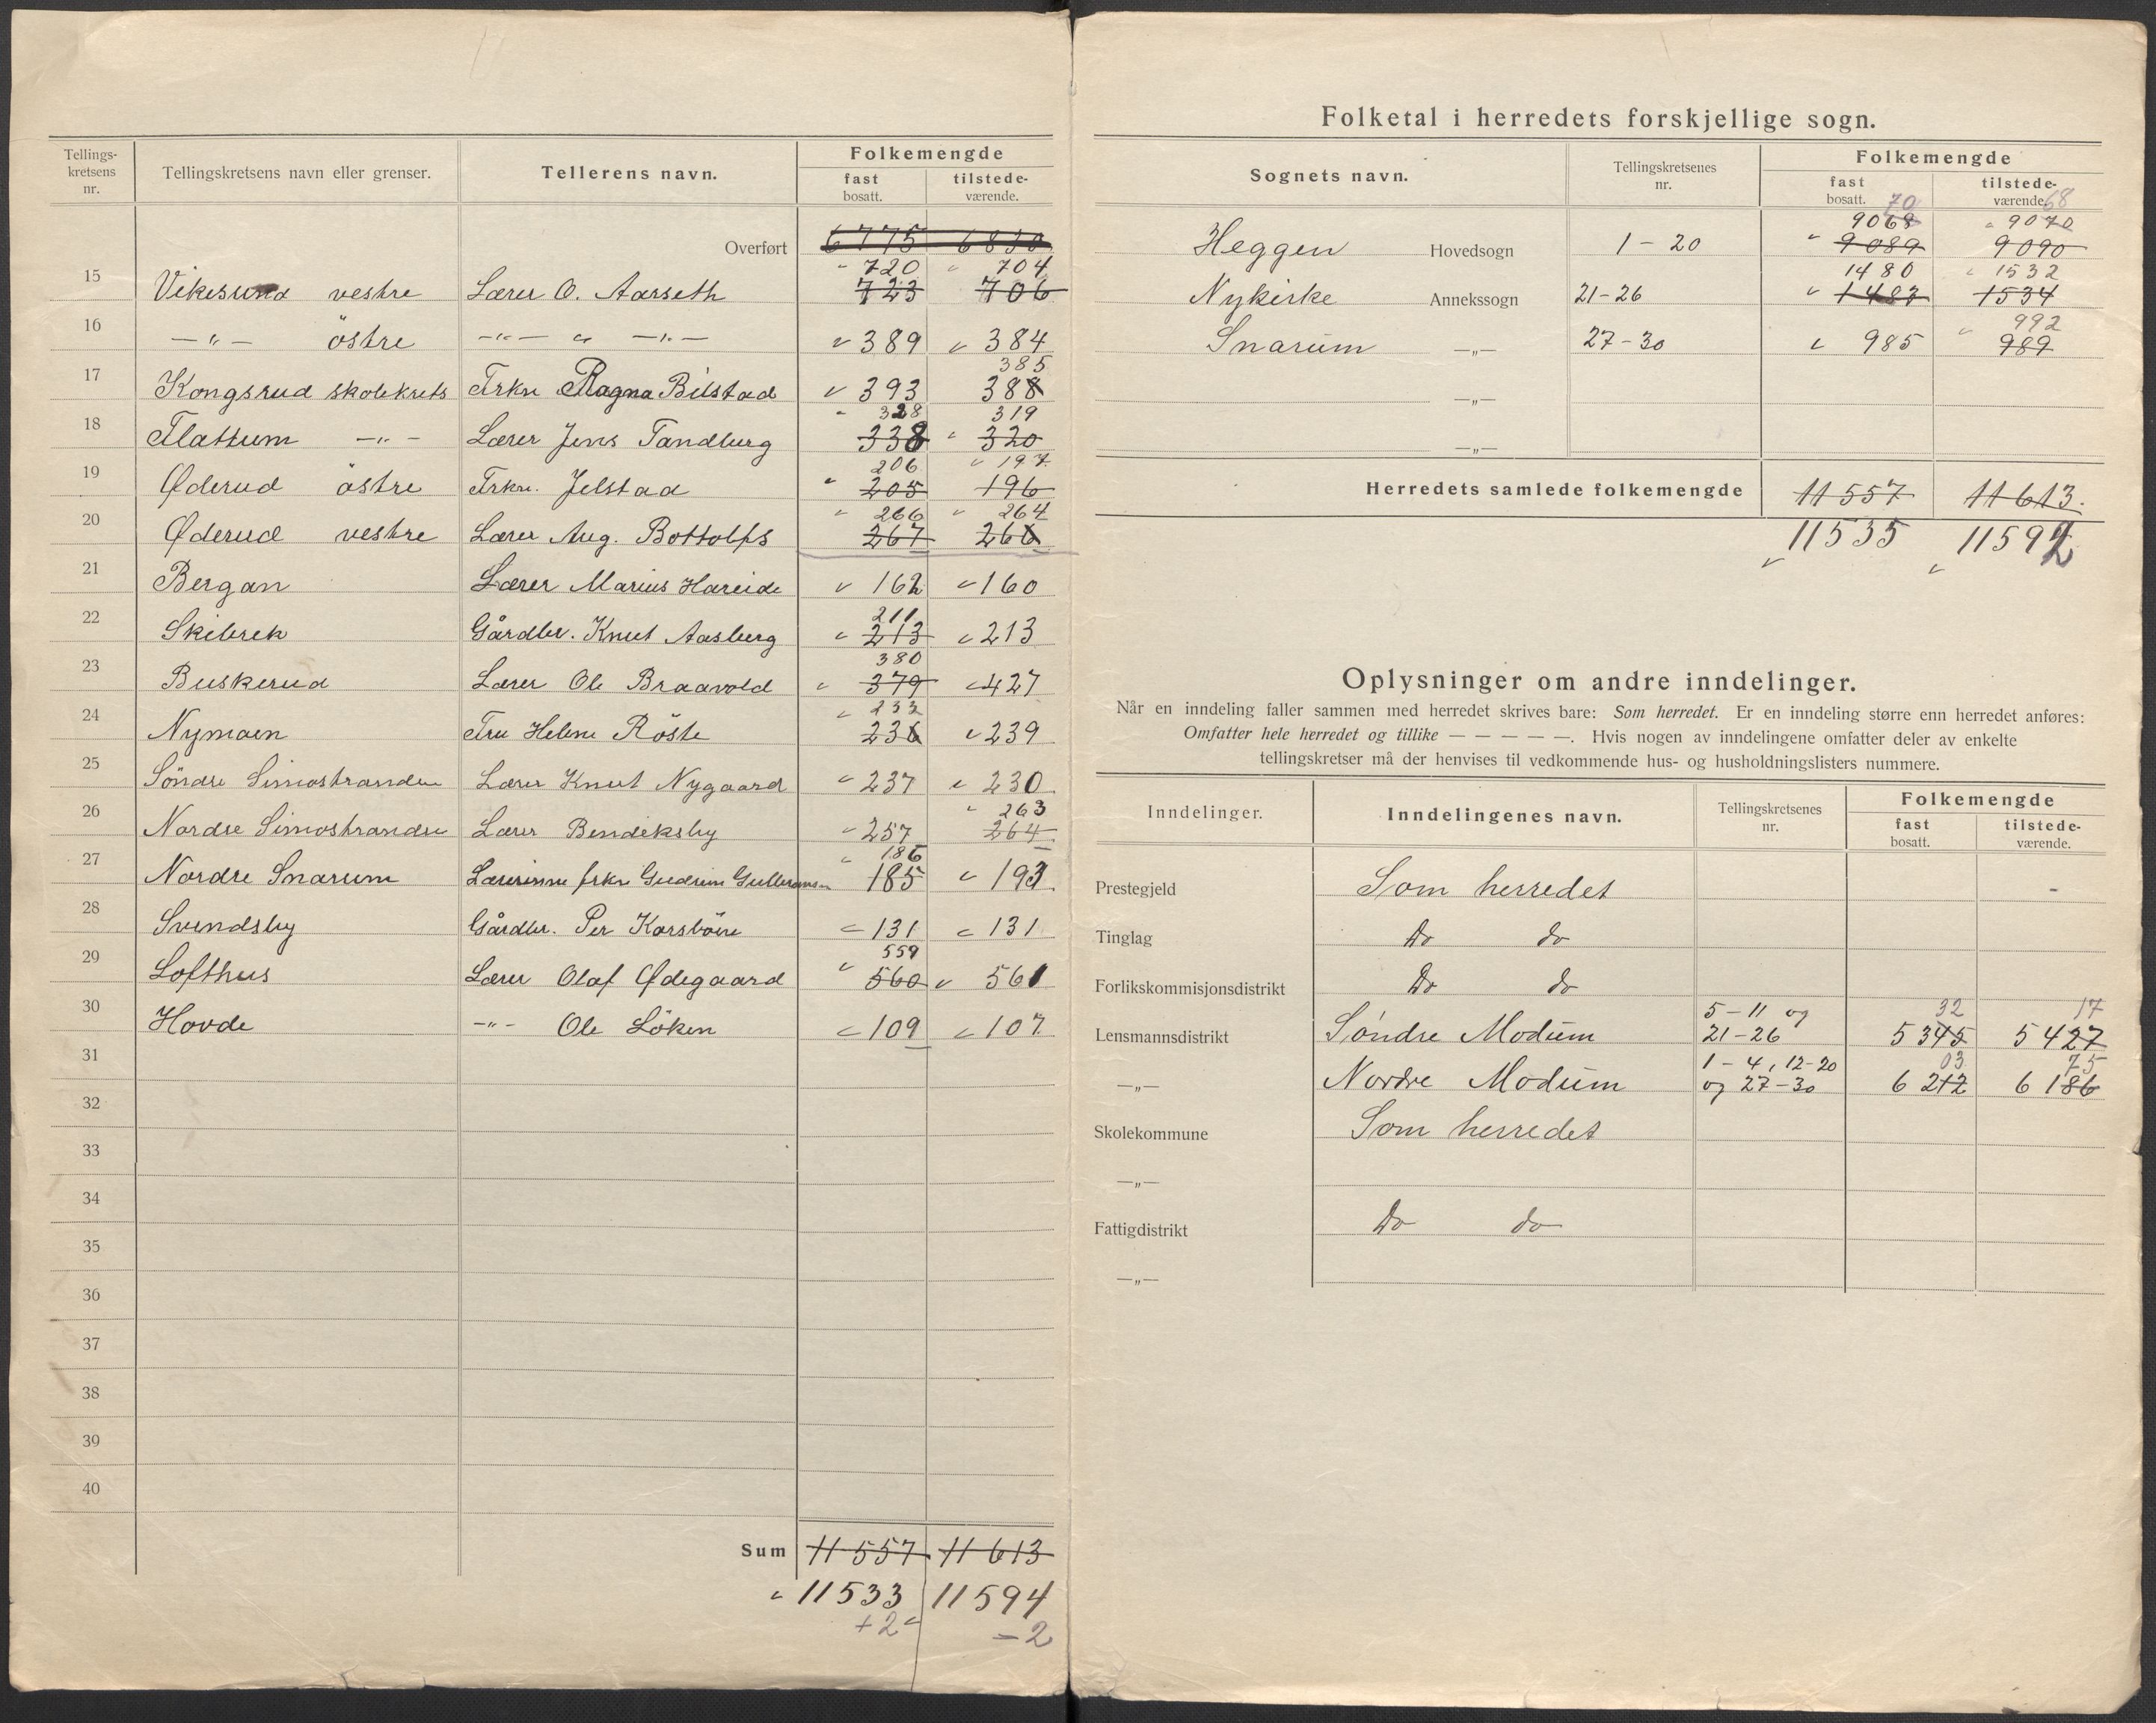 Tellings-
kretsens
nr.
Tellingskretsens navn eller grenser.
Tellerens navn.
Folkemengde
fast
bosatt.
tilstede-
værende.
Overført 6775 6830
720 704
15 Vikesund vestre Lærer O. Aarseth 723 706
16 —„— östre —„— „ —„— 389 384
385
17 Kongsrud skolekrets Frkn Ragna Bilstad 393 388
328 319
18 Flattum —„— Lærer Jens Tandberg 338 320
206 197
19 Øderud östre Frkn. Jelstad 205 196
266 264
20 Øderud vestre Lærer Aug. Bottolfs 267 266
21 Bergan Lærer Marius Hareide 162 160
211
22 Skibrek Gårdbr. Knut Aasberg 213 213
380
23 Buskerud Lærer Ole Braavold 379 427
233
24 Nymoen Fru Helene Röste 236 239
25 Söndre Simostranden Lærer Knut Nygaard 237 230
263
26 Nordre Simostranden Lærer Bendeksby 257 264
186
27 Nordre Snarum Lærerinne frkn Gudrun Gulbransen 185 193
28 Svendsby Gårdbr. Per Korsböen 131 131
559
29 Lofthus Lærer Olaf Ødegaard 560 561
30 Hovde —„— Ole Löken 109 107
31
32
33
34
35
36
37
38
39
40
Sum 11557 11613
11533 11594
+2 -2
Folketal i herredets forskjellige sogn.
Sognets navn.
Tellingskretsenes
nr.
Folkemengde
fast
bosatt.
tilstede-
værende.
70 68
9068 9070
Heggen Hovedsogn 1-20 9089 9090
1480 1532
Nykirke Annekssogn 21-26 1483 1534
992
Snarum —„— 27-30 985 989
—„—
—„—
Herredets samlede folkemengde 11557 11613.
11535 11592
Oplysninger om andre inndelinger.
Når en inndeling faller sammen med herredet skrives bare: Som herredet. Er en inndeling større enn herredet anføres:
Omfatter hele herredet og tillike — — — — —. Hvis nogen av inndelingene omfatter deler av enkelte
tellingskretser må der henvises til vedkommende hus- og husholdningslisters nummere.
Inndelinger.
Inndelingenes navn.
Tellingskretsenes
nr.
Folkemengde
fast
bosatt.
tilstede-
værende.
Prestegjeld Som herredet -
Tinglag Do do
Forlikskommisjonsdistrikt Do do
5-11 og 32 17
Lensmannsdistrikt Söndre Modum 21-26 5345 5427
1-4, 12-20 03 75
—„— Nordre Modum og 27-30 6212 6186
Skolekommune Som herredet
—„—
Fattigdistrikt Do do
—„—